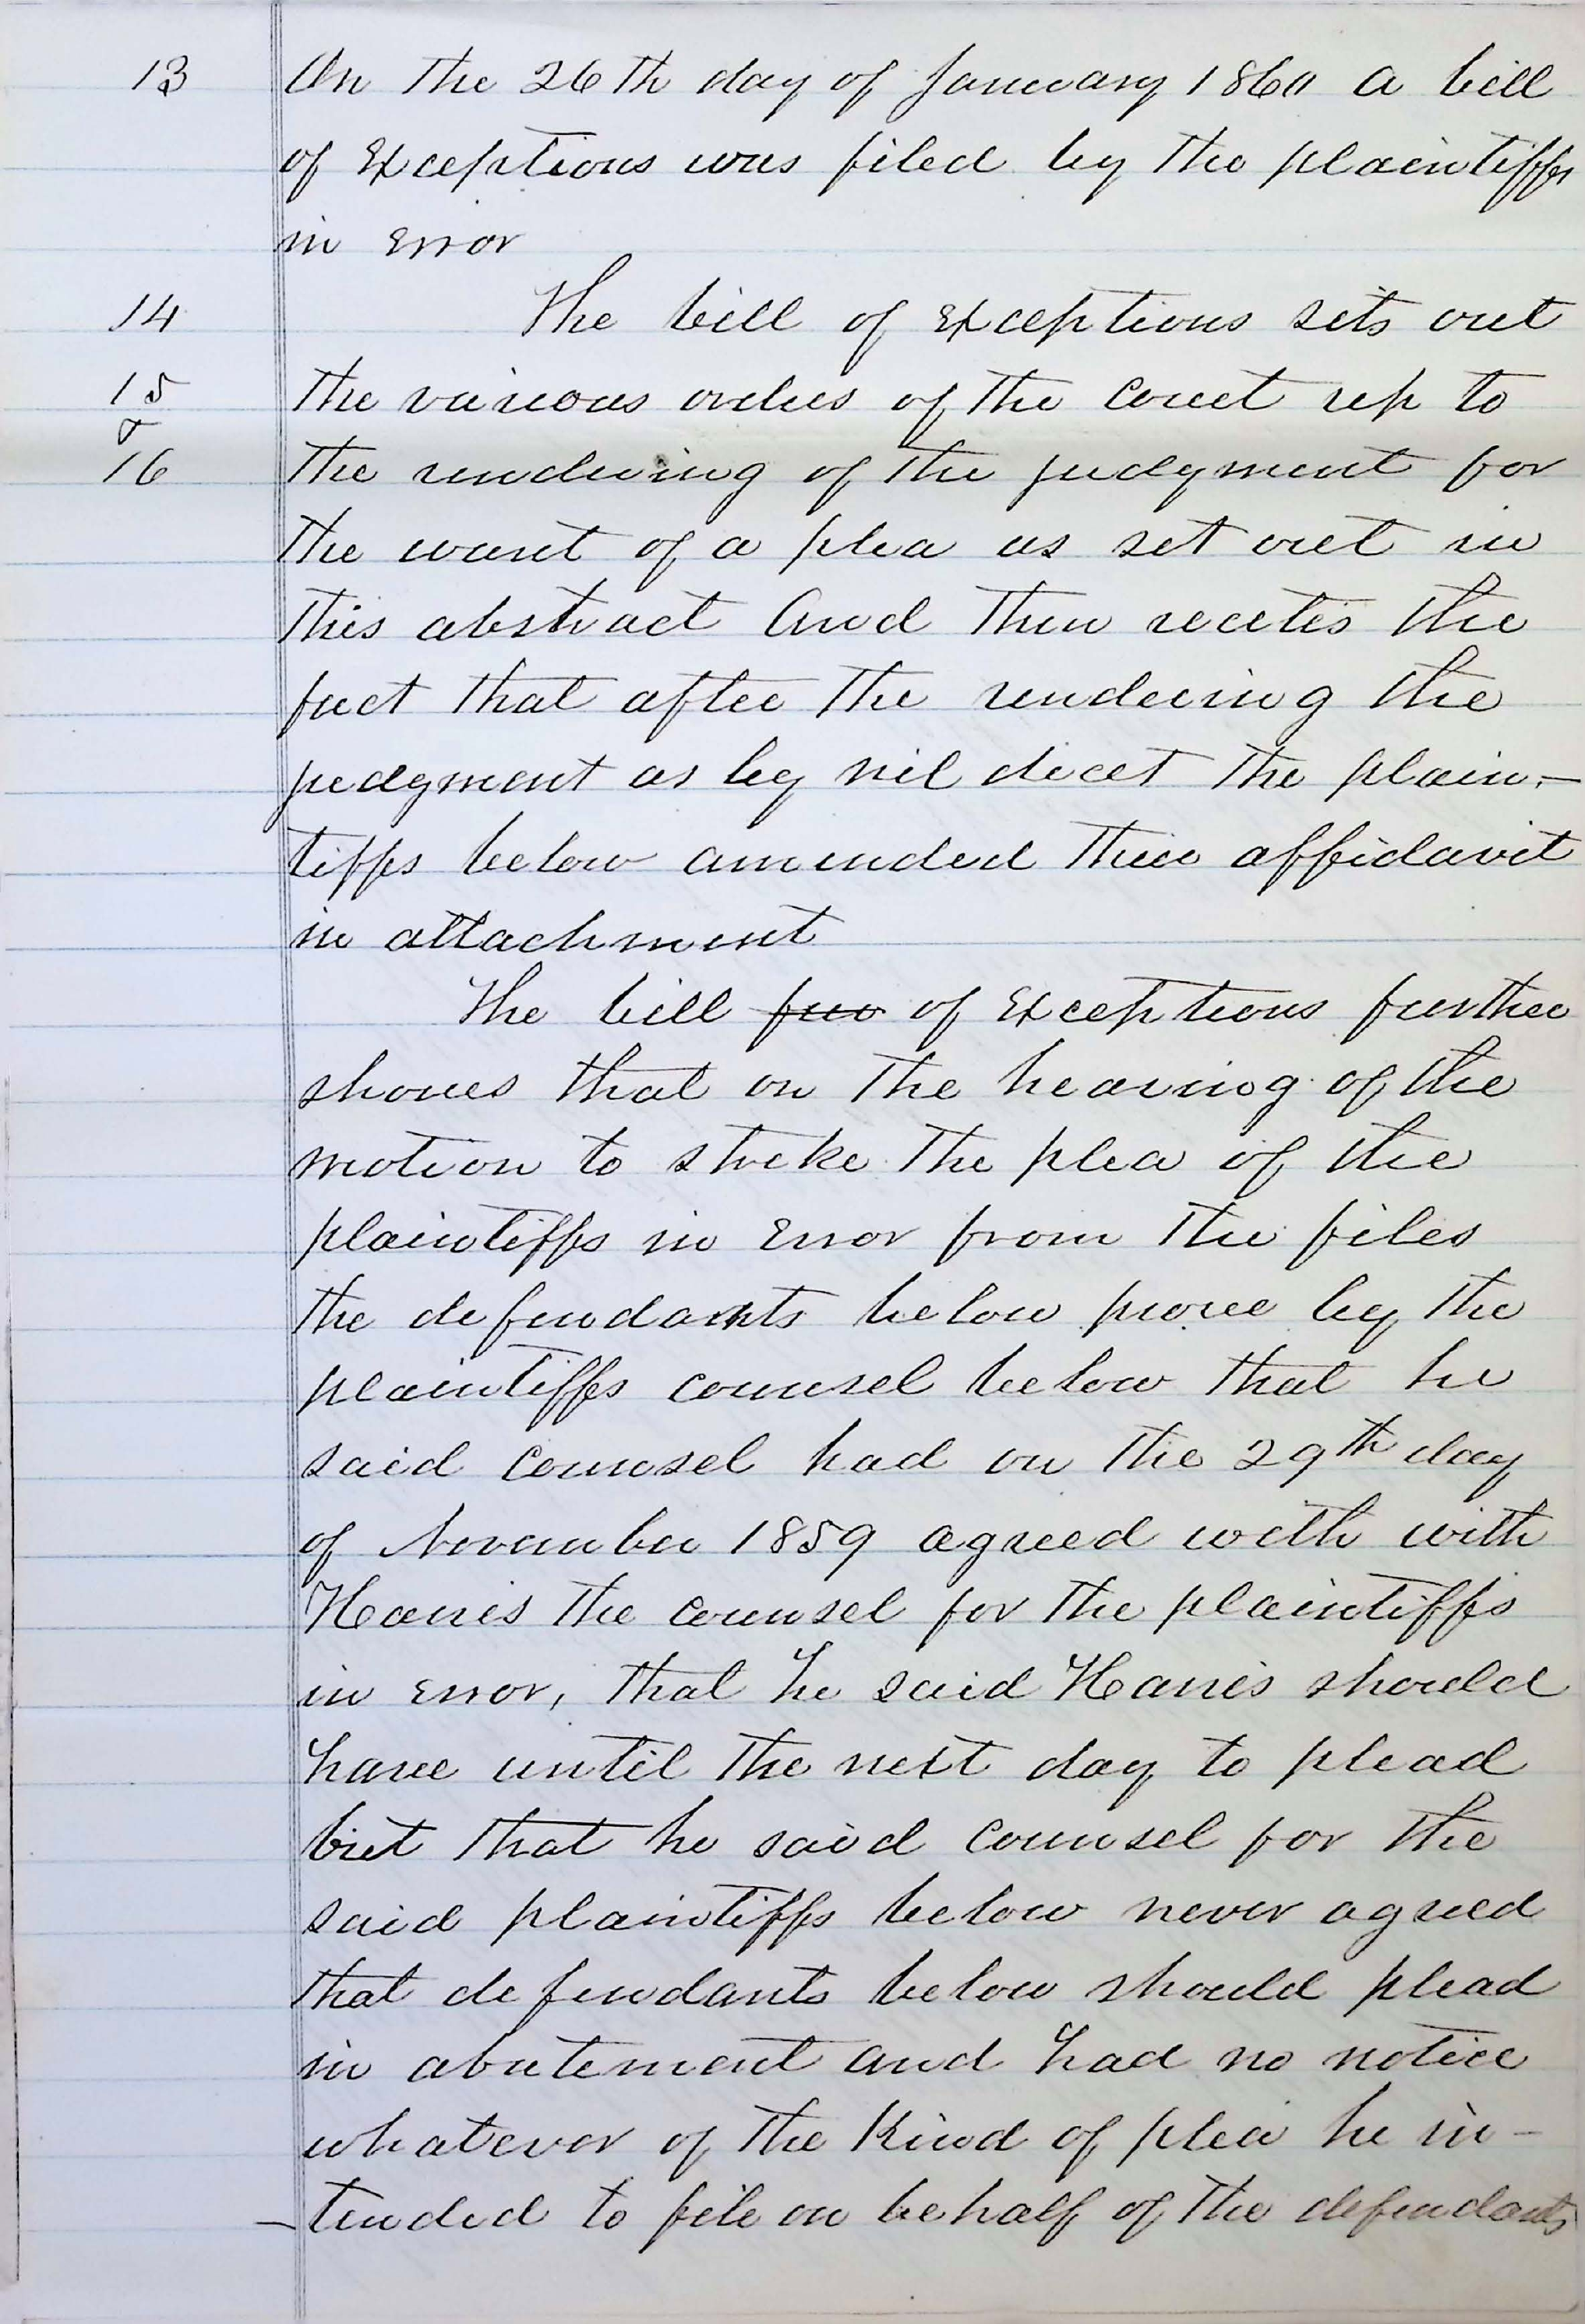 13 On the 26th day of January 1860 a bill
of Exceptions was filed by the plaintiffs
in Error
14 The bill of Exceptions sets out
15 the various orders of the Court up to
&
16 the rendering of the judgment for
the want of a plea as set out in
this abstract And then recites the
fact that after the rendering the
judgment as by nil dicet the plain-
tiffs below amended their affidavit
in attachment
The bill fur of Exceptions further
shows that on the hearing of the
motion to strike the plea of the
plaintiffs in Error from the files
the defendants below prove by the
plaintiffs counsel below that he
said Counsel had on the 29th day
of November 1859 agreed with with
Harris the counsel for the plaintiffs
in Error, that he said Harris should
have until the next day to plead
but that he said Counsel for the
said plaintiffs below never agreed
that defendants below should plead
in abatement and had no notice
whatever of the Kind of plea he in-
-tended to file on behalf of the defendants